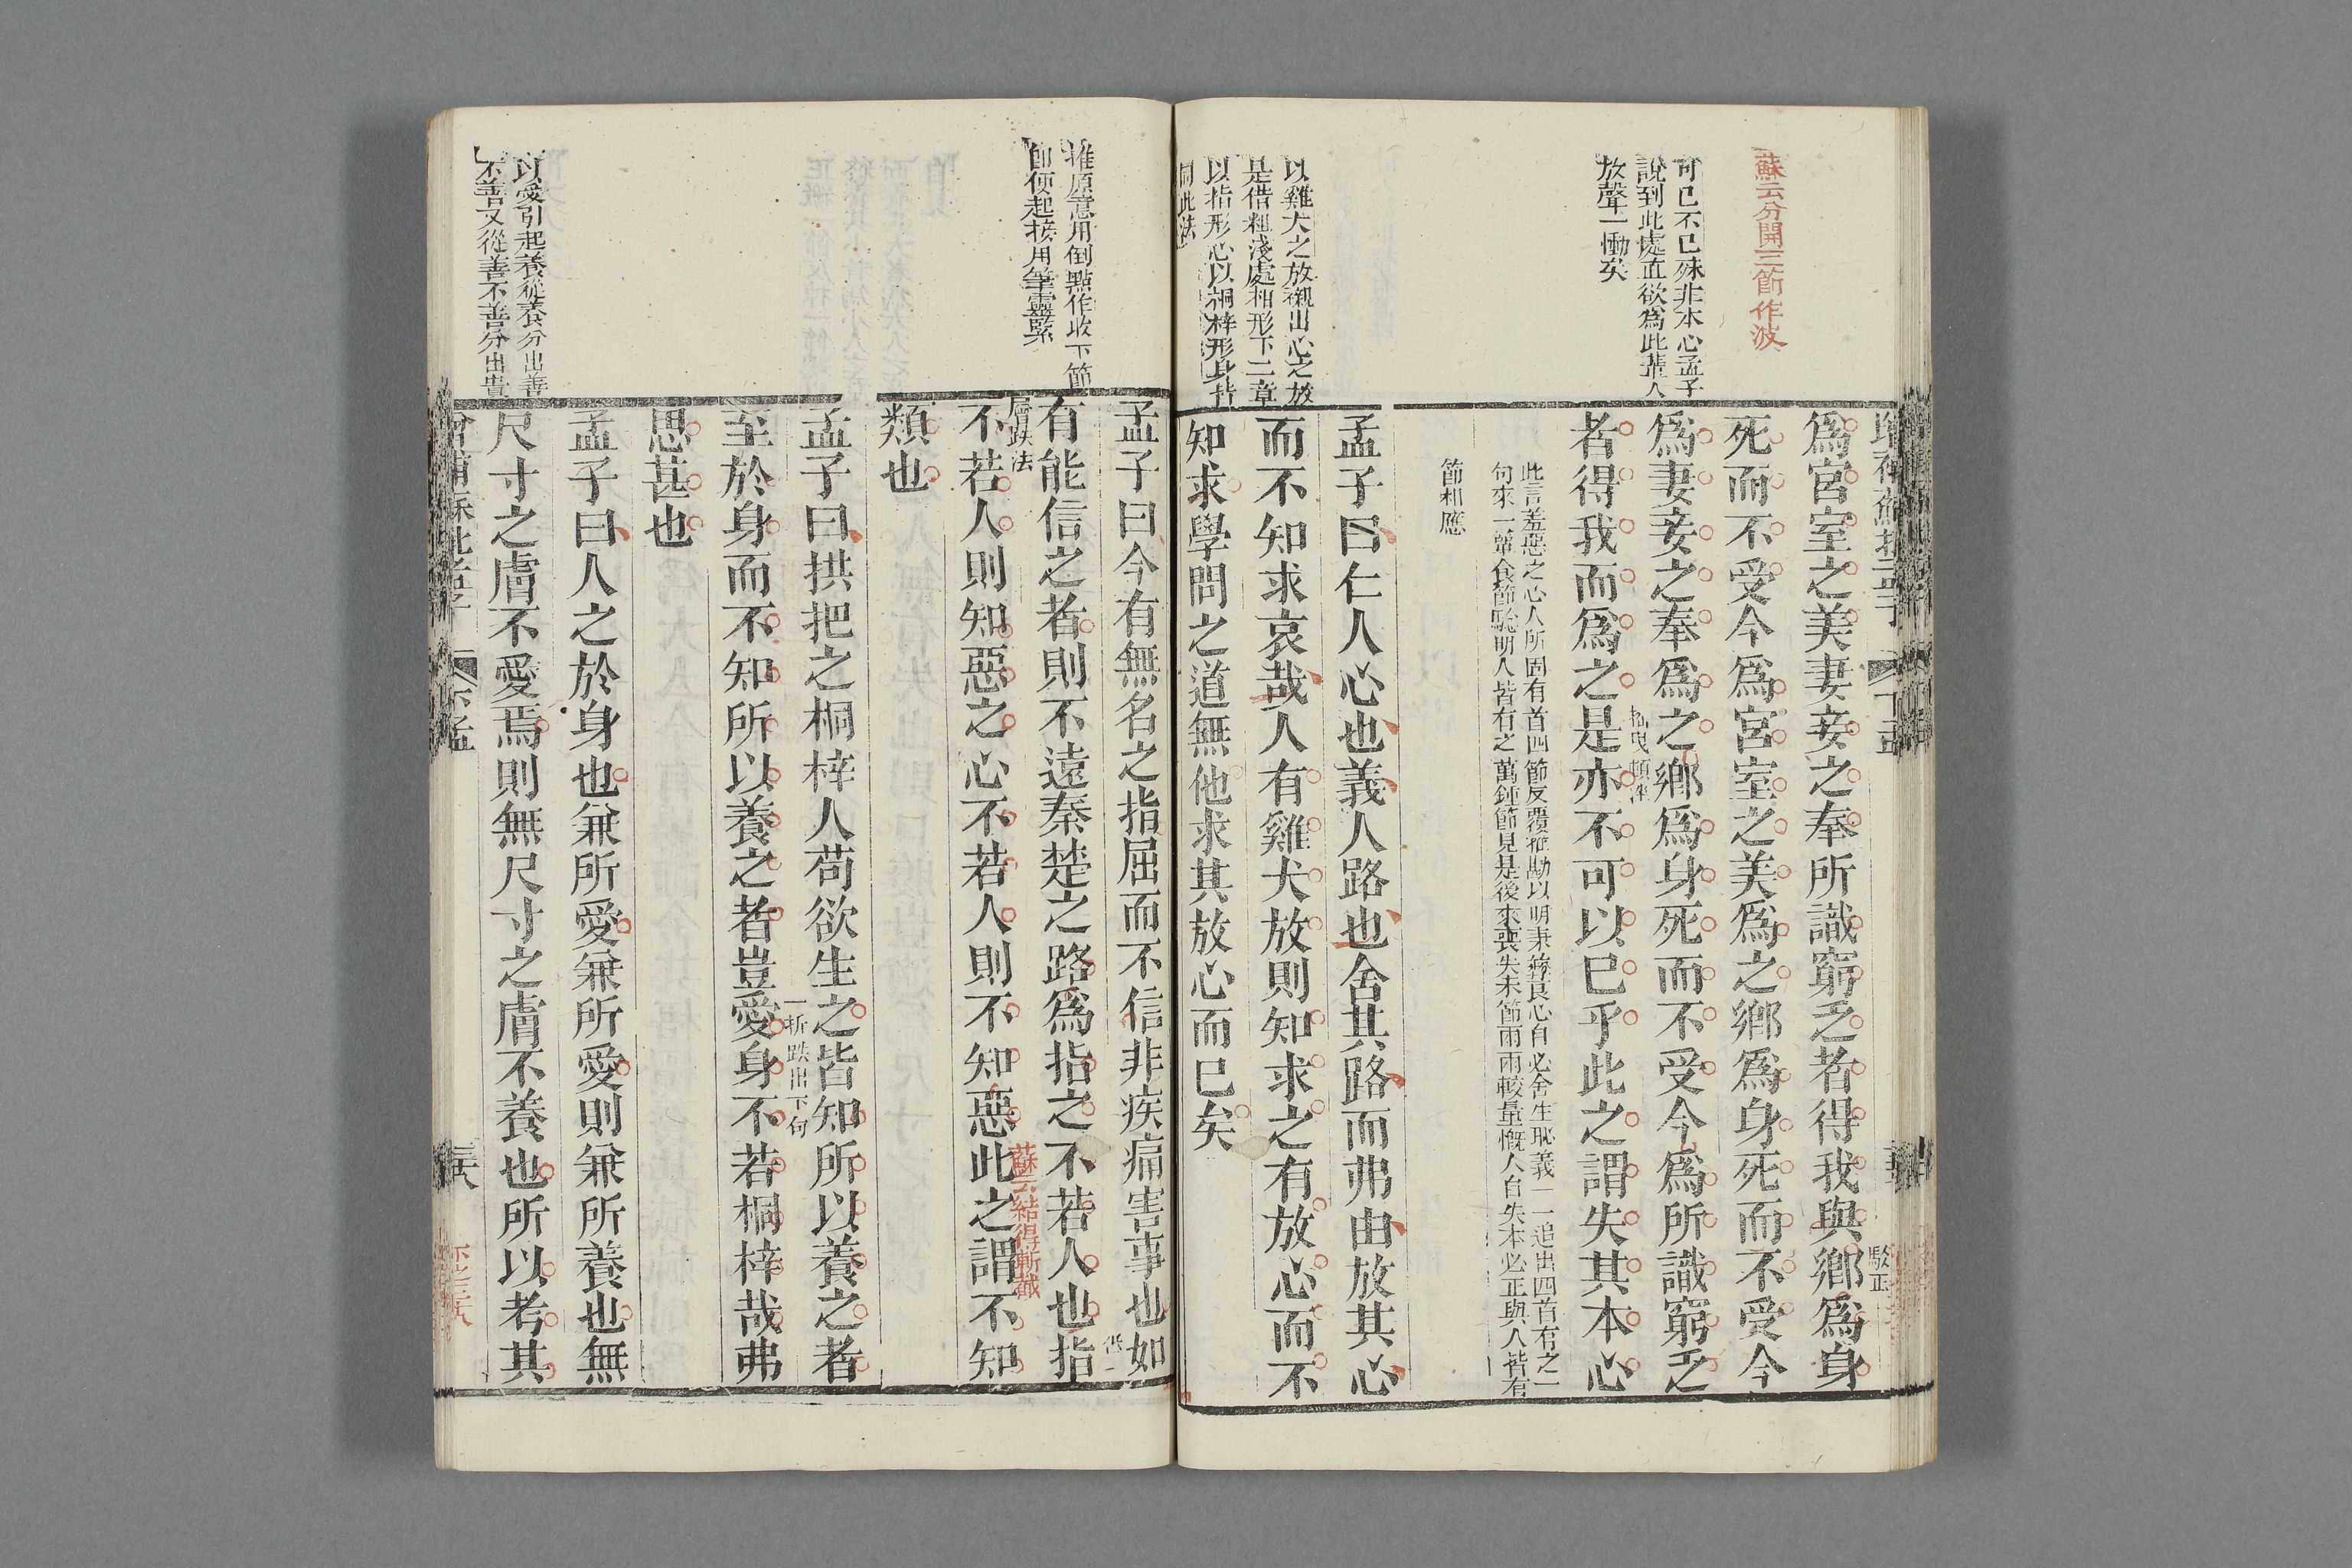 蘇云分開三節作波
可已不已殊非本心孟子
說到此處直欲爲此輩人
放聲一慟矣
以雞犬之放襯出心之放
是借粗淺處相形下二章
以指形心以桐梓形身皆
同此法
爲宮室之美妻妾之奉所識窮乏者得我與鄉爲身
駁正
死而不受今爲宮室之美爲之鄉爲身死而不受今
爲妻妾之奉爲之鄉爲身死而不受今爲所識窮乏
者得我而爲之是亦不可以已乎此之謂失其本心
此言羞惡之心人所固有首四節反覆推勘以明秉彝良心自必舍生取義一一追出四首有之一
句來一簞食節點明人皆有之萬鍾節見是後來喪失末節兩兩較量慨人自失本心正與人皆有
節相應
孟子曰仁人心也義人路也舍其路而弗由放其心
而不知求哀哉人有雞犬放則知求之有放心而不
知求學問之道無他求其放心而已矣
推原意用倒點作收下節
卽便起接用筆靈緊
以愛引起養從養分出善
不善又從善不善分出貴
孟子曰今有無名之指屈而不信非疾痛害事也如
有能信之者則不遠秦楚之路爲指之不若人也指
層跌法
蘇云結得斬截
不若人則知惡之心不若人則不知惡此之謂不知
類也
孟子曰拱把之桐梓人苟欲生之皆知所以養之者
一折跌出下句
至於身而不知所以養之者豈愛身不若桐梓哉弗
思甚也
孟子曰人之於身也兼所愛兼所愛則兼所養也無
尺寸之膚不愛焉則無尺寸之膚不養也所以考其
下孟